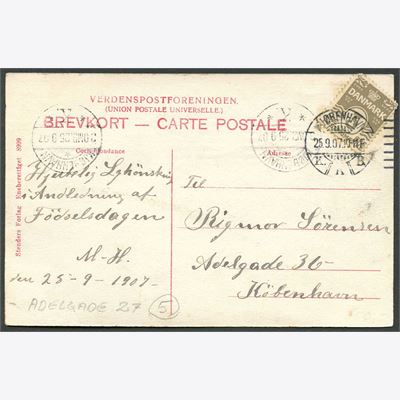 VERDENSPOSTFORENINGEN.
(UNION POSTALE UNIVERSELLE.)
BREVKORT — CARTE POSTALE
Correspondance
Adresse
Stenders Forlag Eneberettiget 8999
DANMARK
KØBENHAVN
25.9.07
K. K B.
Hjertelig Lykönskning
i Anledning af
Födselsdagen
M-H.
den 25-9-1907.
Til
Rigmor Sörensen
Adelgade 36
København
ADELGADE 27 5